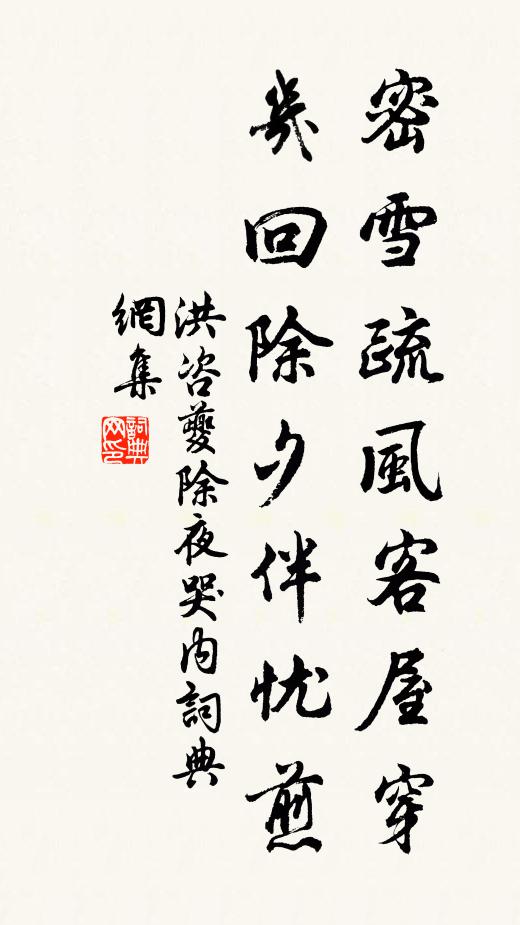 密雪疏風客屋穿
幾回除夕伴忧煎
洪咨夔除夜哭内詞典
網集
詞典
网印